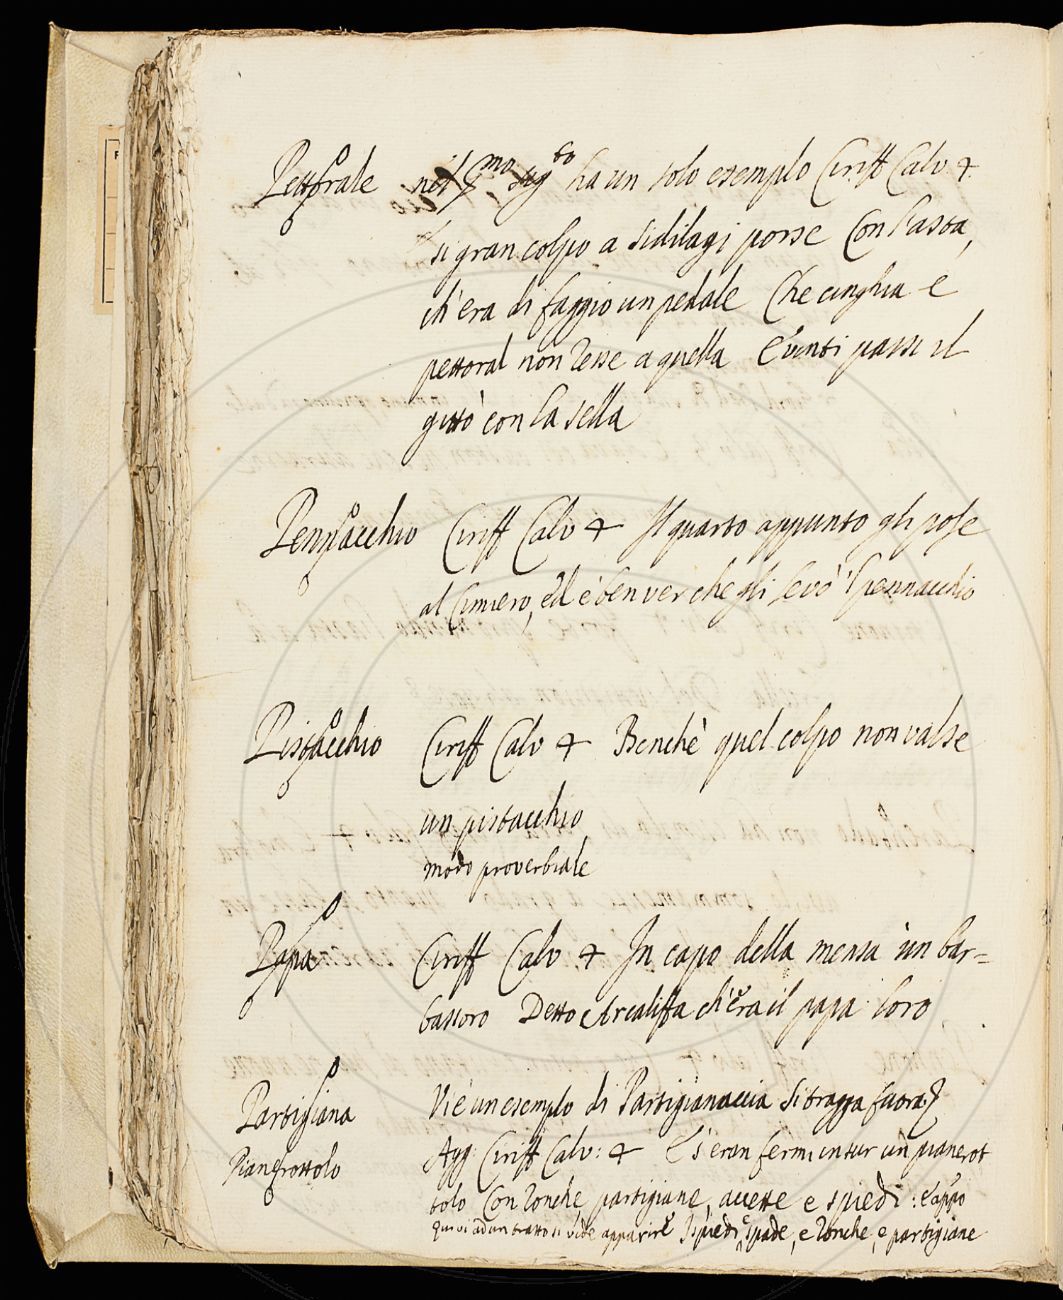 Pettorale nel Pmo sigto ha un solo esemplo Ciriff Calv 4
si gran colpo a Sidilagi porse Con l'asta,
ch'era di faggio un pedale Che cinghia e
pettoral non resse a quella E venti passi il
gittò con la sella
Pennacchio Ciriff Calv 4 Il quarto appunto gli pose
al Cimiero, ed è ben ver che gli levò 'l pennacchio
Pistacchio Ciriff Calv 4 Benchè quel colpo non valse
un pistacchio
modo proverbiale
Papa Ciriff Calv 4 In capo della mensa un bar=
bassoro Detto Arcaliffa ch'era il papa loro
Partigiana Vi è un esemplo di Partigianaccia si tragga fuora
Piangrottolo Agg: Ciriff Calv: 4 E s'eran fermi intur un pianerot
tolo Con ronche, partigiane, accette e spiedi: e appo
Quivi ad un tratto si vide apparire Spiedi, spade, e ronche, e partigiane